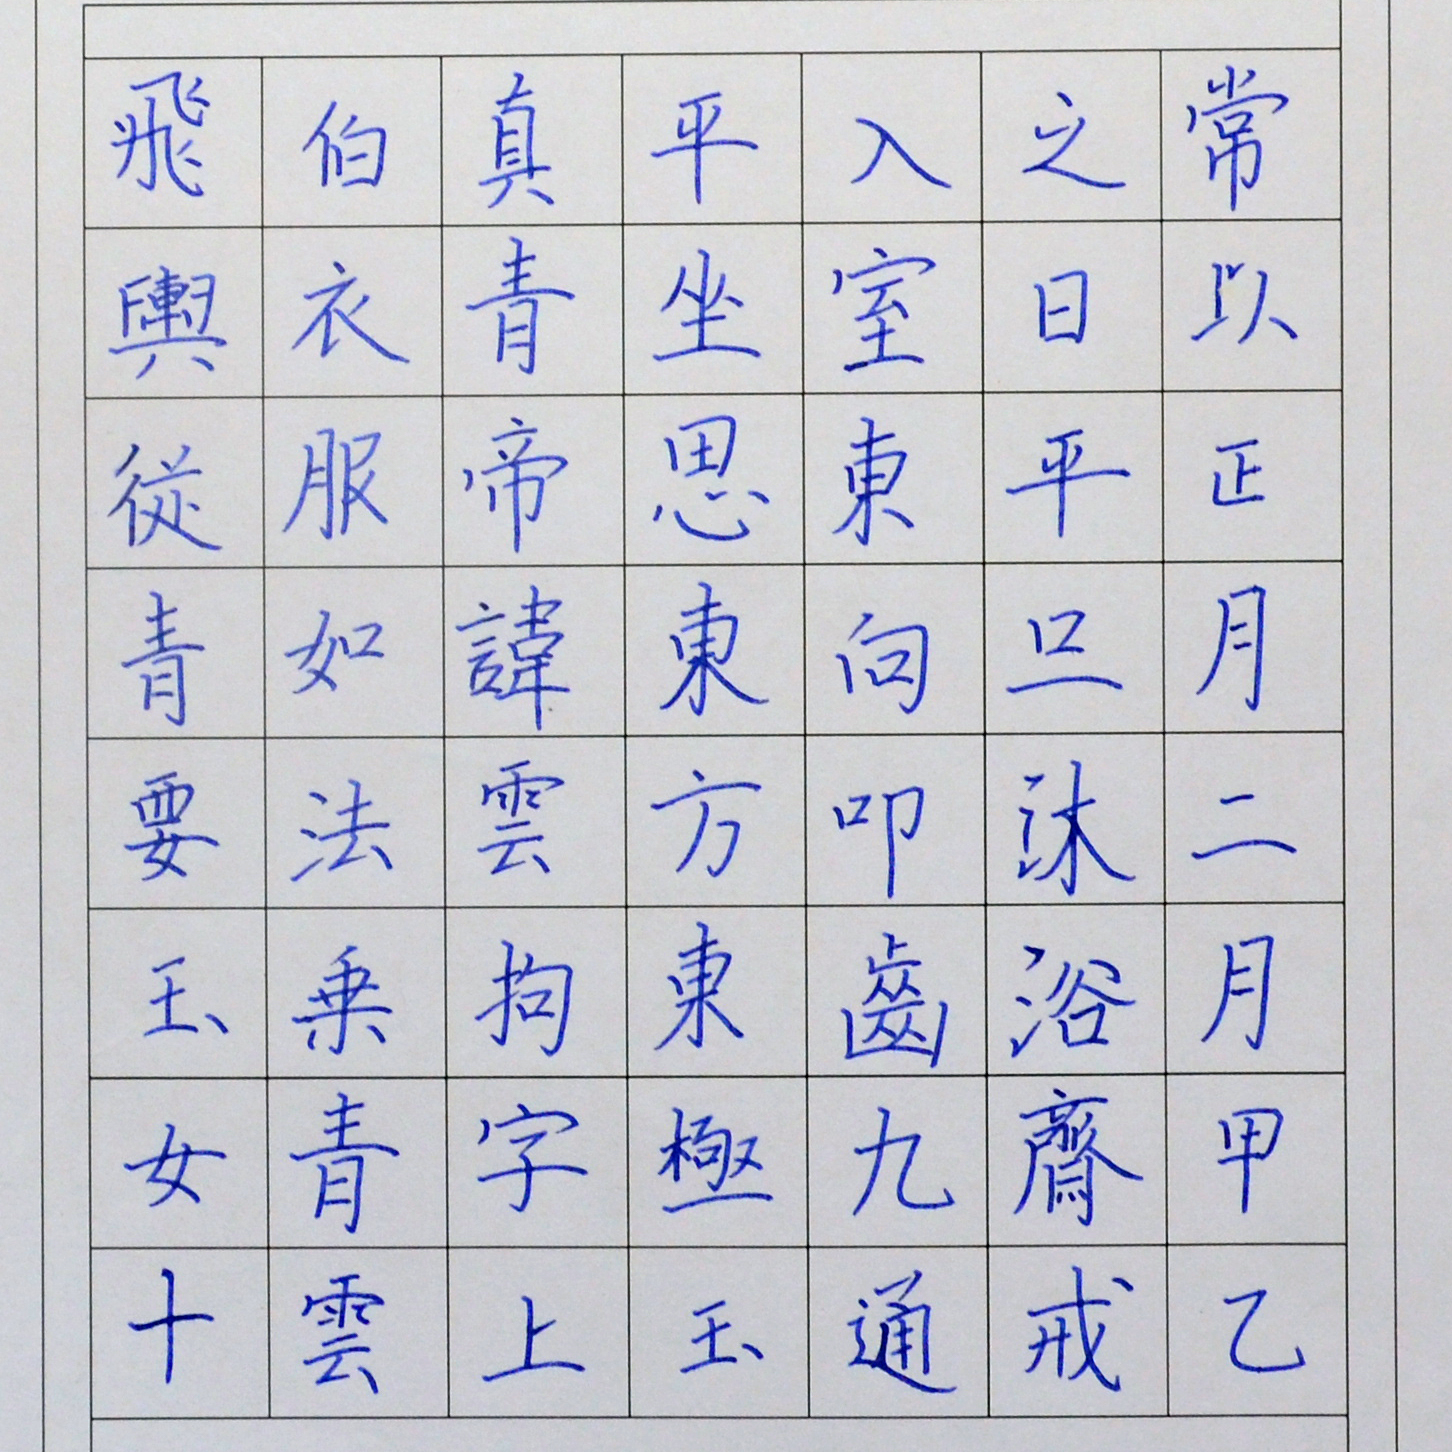 常以正月二月甲乙
之日平旦沐浴齋戒
入室東向叩齒九通
平坐思東方東極玉
真青帝諱雲拘字上
伯衣服如法乗青雲
飛輿從青要玉女十